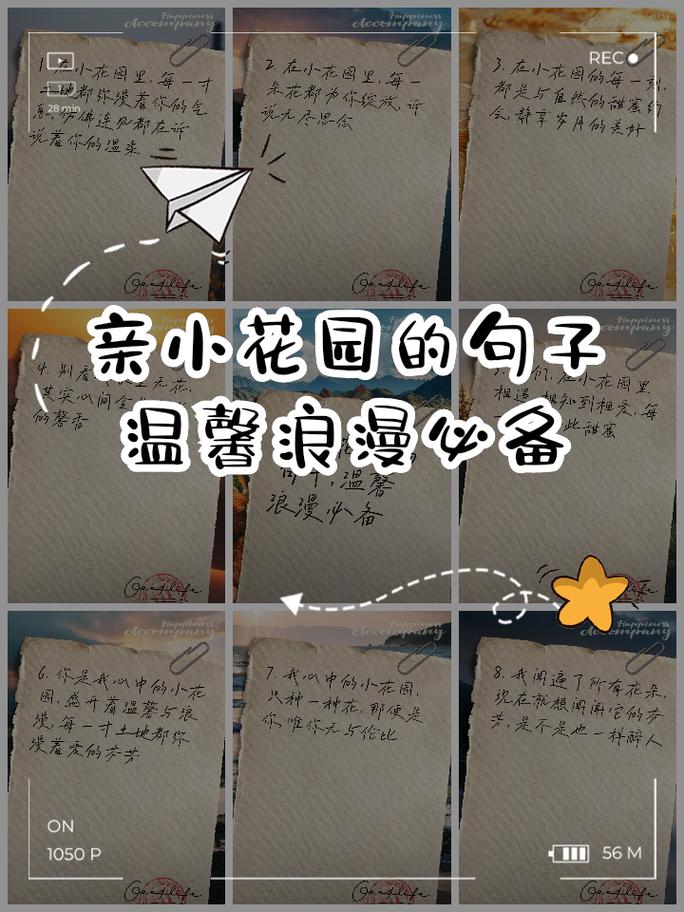 Happiness
Accompany
Happiness
Accompany
REC
28 min
1. 在小花园里,每一寸
土地都弥漫着你的气
息,仿佛连风都在诉
说着你的温柔
Goodlife
2. 在小花园里,每一
朵花都为你绽放,诉
说无尽思念
Goodlife
3. 在小花园的每一刻,
都是与自然的甜蜜约
会,静享岁月的美好
Goodlife
亲小花园的句子
温馨浪漫必备
Happiness
Accompany
4. 别看
无花,
其实心间
的馨香
Goodlife
句子,温馨
浪漫必备
们,在小花园里
相遇 相知到相爱,每
此甜蜜
Goodlife
Happiness
Accompany
Happiness
Accompany
6. 你是我心中的小花
园,盛开着温馨与浪
漫,每一寸土地都弥
漫着爱的芬芳
7. 我心中的小花园,
只种一种花,那便是
你,唯你无与伦比
8. 我闻遍了所有花朵,
现在就想闻闻它的芬
芳,是不是也一样醉人
ON
1050 P
56 M